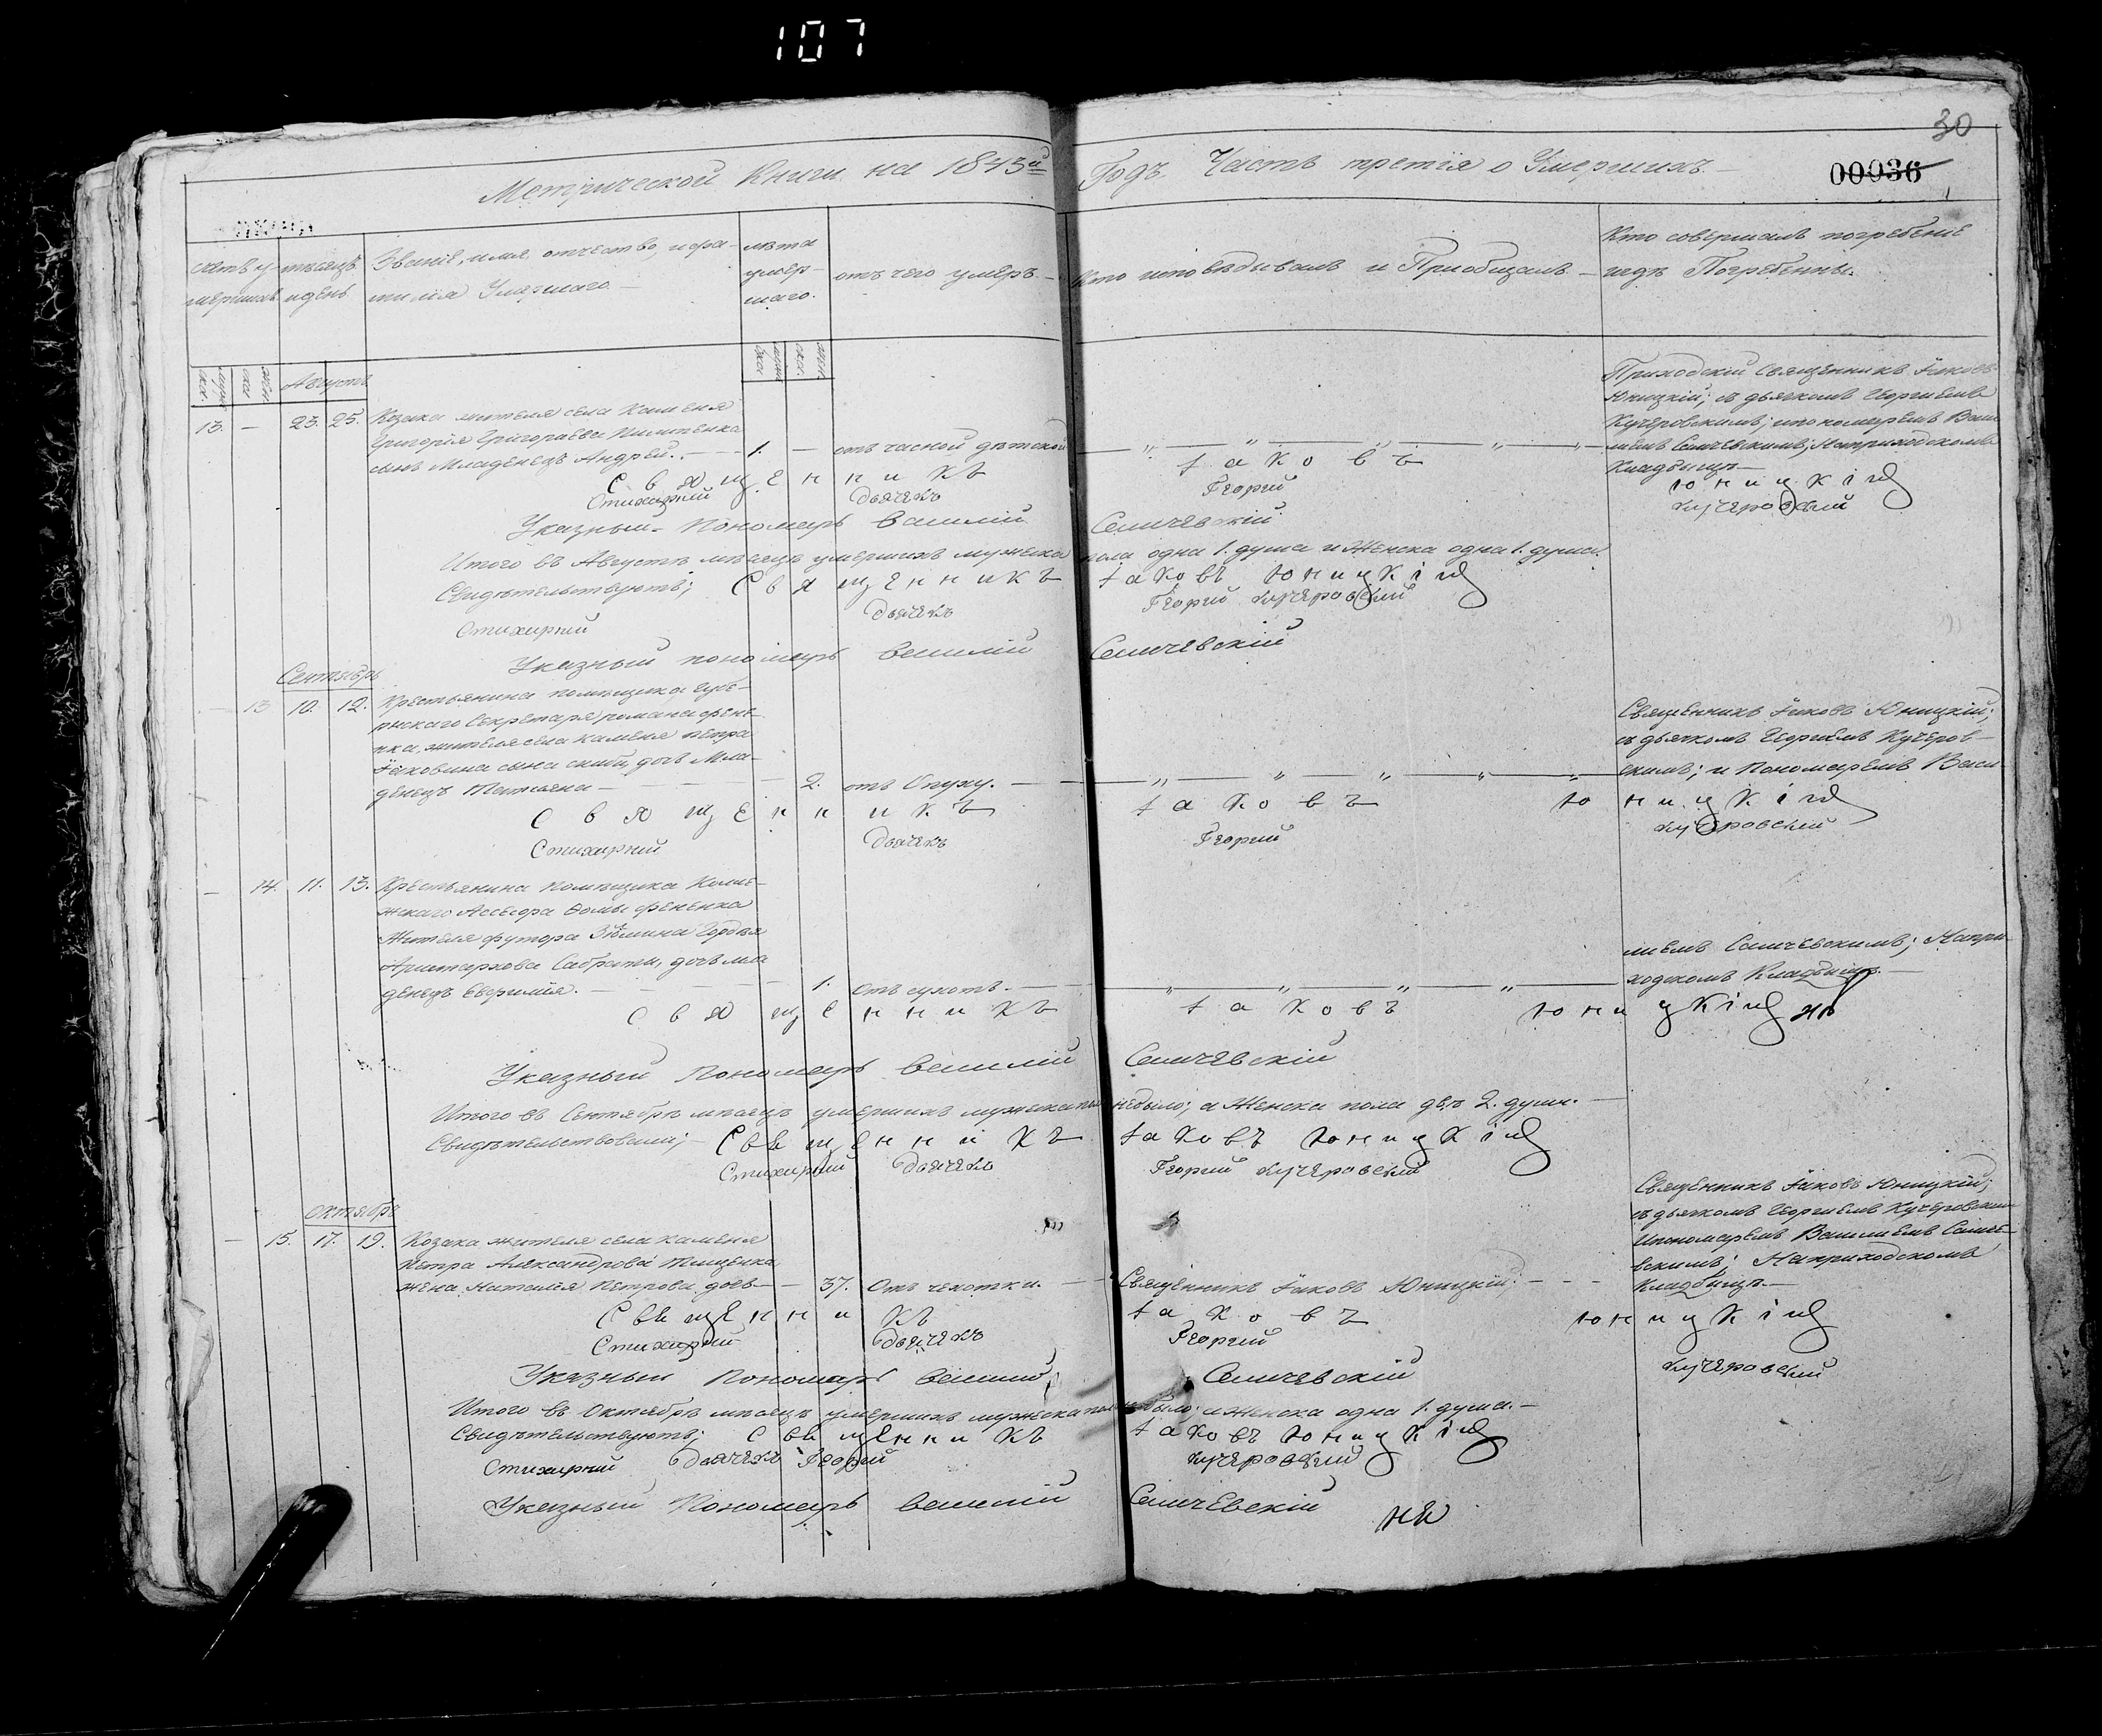 107
30
Метрической Книги на 1843й Годъ Часть третія о Умершихъ
00036
счетъ у-
мершихъ
мѣсяцъ
и день
Званіе, имя, отчество, и фа-
милія Умершаго
лѣта
умер-
шаго.
отъ чего умеръ
Кто исповѣдывалъ и Пріобщалъ
Кто совершалъ погребеніе
и гдѣ Погребенны.
Августъ
13. — 23. 25. Козака жителя села Каменя
Григорія Григорьева
сынъ Младенецъ Андрей. 1. — отъ часной дѣтской
Приходскій Священникъ Іаковъ
Юницкій; съ дьячкомъ Георгіемъ
Кучеровскимъ; и пономаремъ Васи-
ліемъ Саличевскимъ; На приходскомъ
Кладбищѣ
Священникъ Іаковъ Юницкій
Стихарный Дьячекъ Георгій Кучеровскый
Указный Пономарь Василій Саличевскій
Итого въ Августѣ мѣсяцѣ умершихъ мужеска пола одна 1. душа и Женска одна 1. душа.
Свидѣтельствуютъ; Священникъ Іаковъ Юницкій
Стихарный Дьячекъ Георгій Кучеровскый
Указный пономарь Василій Саличевскій
Сентябрь
— 13 10. 12. Крестьянина помѣщика Губе-
рнскаго Секретаря романа фене-
нка, жителя села Каменя Петра
сына дочь Мла-
денецъ Татьяна — 2. отъ Опуху.
Священникъ Іаковъ Юницкій;
съ дьячкомъ Георгіемъ Кучеров-
скимъ; и Пономаремъ Васи
Священникъ Іаковъ Юницкій
Стихарный Дьячекъ Георгій Кучеровскый
— 14. 11. 13. Крестьянина Помѣщика Колле-
жскаго Ассесора Ѳомы фененка
Жителя футора
дочь мла
денецъ Евфимія. — 1. отъ сухотъ.
ліемъ Саличевскимъ; На при-
ходскомъ Кладбищѣ.
Священникъ Іаковъ Юницкій
Указный Пономарь Василій Саличевскій
Итого въ Сентябрѣ мѣсяцѣ умершихъ мужеска пола небыло; а Женска пола двѣ 2. души.
Свидѣтельствовали; Священникъ Іаковъ Юницкій
Стихарный Дьячекъ Георгій Кучеровскый
октябрь
— 15. 17. 19. Козака жителя села Каменя
Петра Александрова
жена Наталія Петрова дочь — 37. Отъ чехотки.
Священникъ Іаковъ Юницкій;
Священникъ Іаковъ Юницкій;
съ дьячкомъ Георгіемъ Кучеровскимъ
и пономаремъ Василіемъ Саличе-
вскимъ; На приходскомъ
Кладбищѣ.
Священникъ Іаковъ Юницкій
Стихарный Дьячекъ Георгій Кучеровскый
Указный Пономарь Василій Саличевскій
Итого въ Октябрѣ мѣсяцѣ умершихъ мужеска пола небыло; а Женска одна 1. душа.
Свидѣтельствуютъ; Священникъ Іаковъ Юницкій
Стихарный Дьячекъ Георгій Кучеровскый
Указный Пономарь Василій Саличевскій